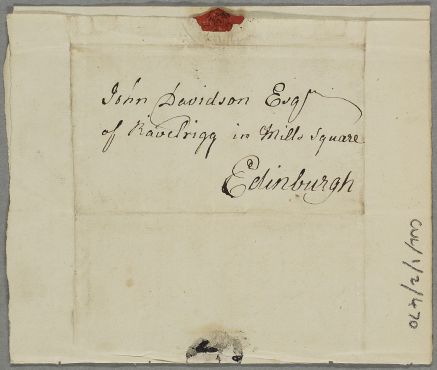 John Davidson Esqr
of Ravelrigg in Mills Square
Edinburgh
CW1/1/2/470